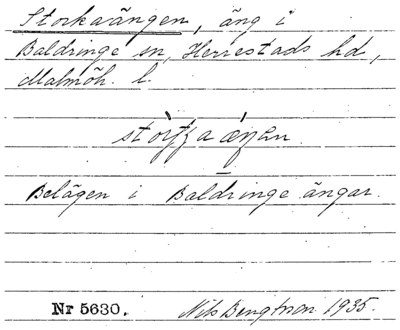 Storkaängen, äng i
Baldringe sn, Herrestads hd,
Malmöh. l.
Belägen i Baldringe ängar.
Nr 5630. Nils Bengtson 1935.